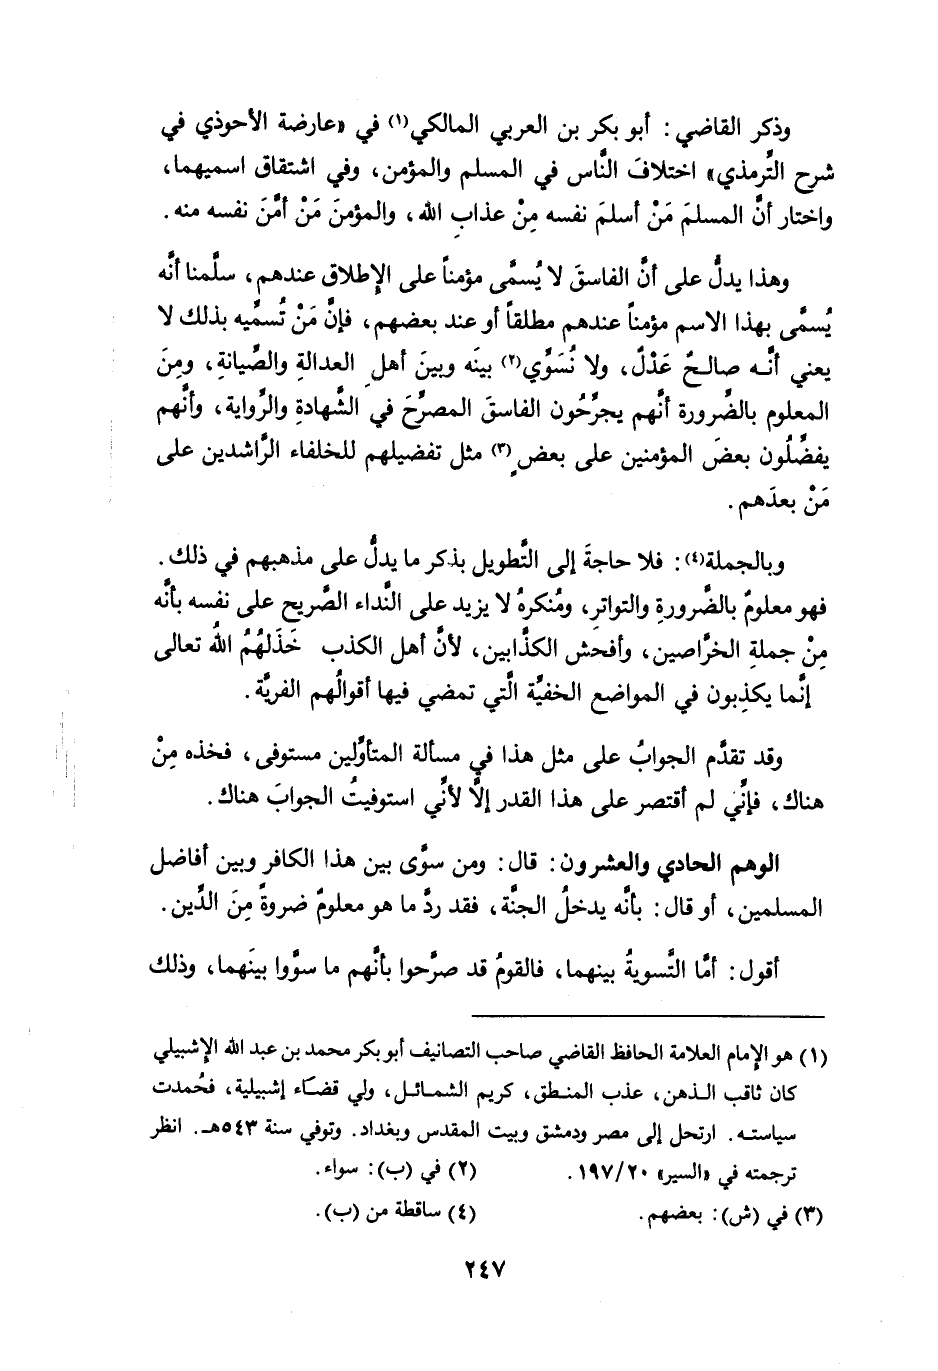 وذكر القاضي: أبو بكر بن العربي المالكي(١) في «عارضة الأحوذي في
شرح التِّرمذي» اختلافَ النَّاس في المسلم والمؤمن، وفي اشتقاق اسميهما،
واختار أنَّ المسلمَ مَنْ أسلمَ نفسه مِنْ عذابِ الله، والمؤمنَ مَنْ أمَّنَ نفسه منه.
وهذا يدلُّ على أنَّ الفاسقَ لا يُسمَّى مؤمناً على الإطلاق عندهم، سلَّمنا أنَّه
يُسمَّى بهذا الاسم مؤمناً عندهم مطلقاً أو عند بعضهم، فإنَّ مَنْ تُسمِّيه بذلك لا
يعني أنَّـه صالـحٌ عَدْلٌ، ولا نُسَوِّي(٢) بينَه وبينَ أهلِ العدالةِ والصِّيانةِ، ومِنَ
المعلوم بالضَّرورة أنَّهم يجرِّحُون الفاسقَ المصرِّحَ في الشَّهادةِ والرِّواية، وأنَّهم
يفضِّلُون بعضَ المؤمنين على بعضٍ(٣) مثل تفضيلهم للخلفاء الرَّاشدين على
مَنْ بعدَهم.
وبالجملة(٤): فلا حاجةَ إلى التَّطويل بذكر ما يدلُّ على مذهبهم في ذلك.
فهو معلومٌ بالضَّرورةِ والتواترِ، ومُنكرهُ لا يزيد على النَّداء الصَّريح على نفسه بأنَّه
مِنْ جملةِ الخرَّاصين، وأفحش الكذَّابين، لأنَّ أهل الكذب خَذَلهُمُ اللهُ تعالى
إنَّما يكذِبون في المواضع الخفيَّة الَّتي تمضي فيها أقوالُهم الفريَّة.
وقد تقدَّم الجوابُ على مثل هذا في مسألة المتأوِّلين مستوفى، فخذه مِنْ
هناك، فإنِّي لم أقتصر على هذا القدر إلَّا لأنِّي استوفيتُ الجوابَ هناك.
الوهم الحادي والعشرون: قال: ومن سوَّى بين هذا الكافر وبين أفاضل
المسلمين، أو قال: بأنَّه يدخلُ الجنَّة، فقد ردَّ ما هو معلومٌ ضروةً مِنَ الدِّين.
أقول: أمَّا التَّسويةُ بينهما، فالقومُ قد صرَّحوا بأنَّهم ما سوَّوا بينَهما، وذلك
(١) هو الإمام العلامة الحافظ القاضي صاحب التصانيف أبو بكر محمد بن عبد الله الإشبيلي
كان ثاقب الـذهن، عذب المنـطق، كريم الشمـائـل، ولي قضـاء إشبيلية، فحُمدت
سياستـه. ارتحل إلى مصر ودمشق وبيت المقدس وبغداد. وتوفي سنة ٥٤٣هـ. انظر
ترجمته في «السير» ١٩٧/٢٠. (٢) في (ب): سواء.
(٣) في (ش): بعضهم. (٤) ساقطة من (ب).
٢٤٧